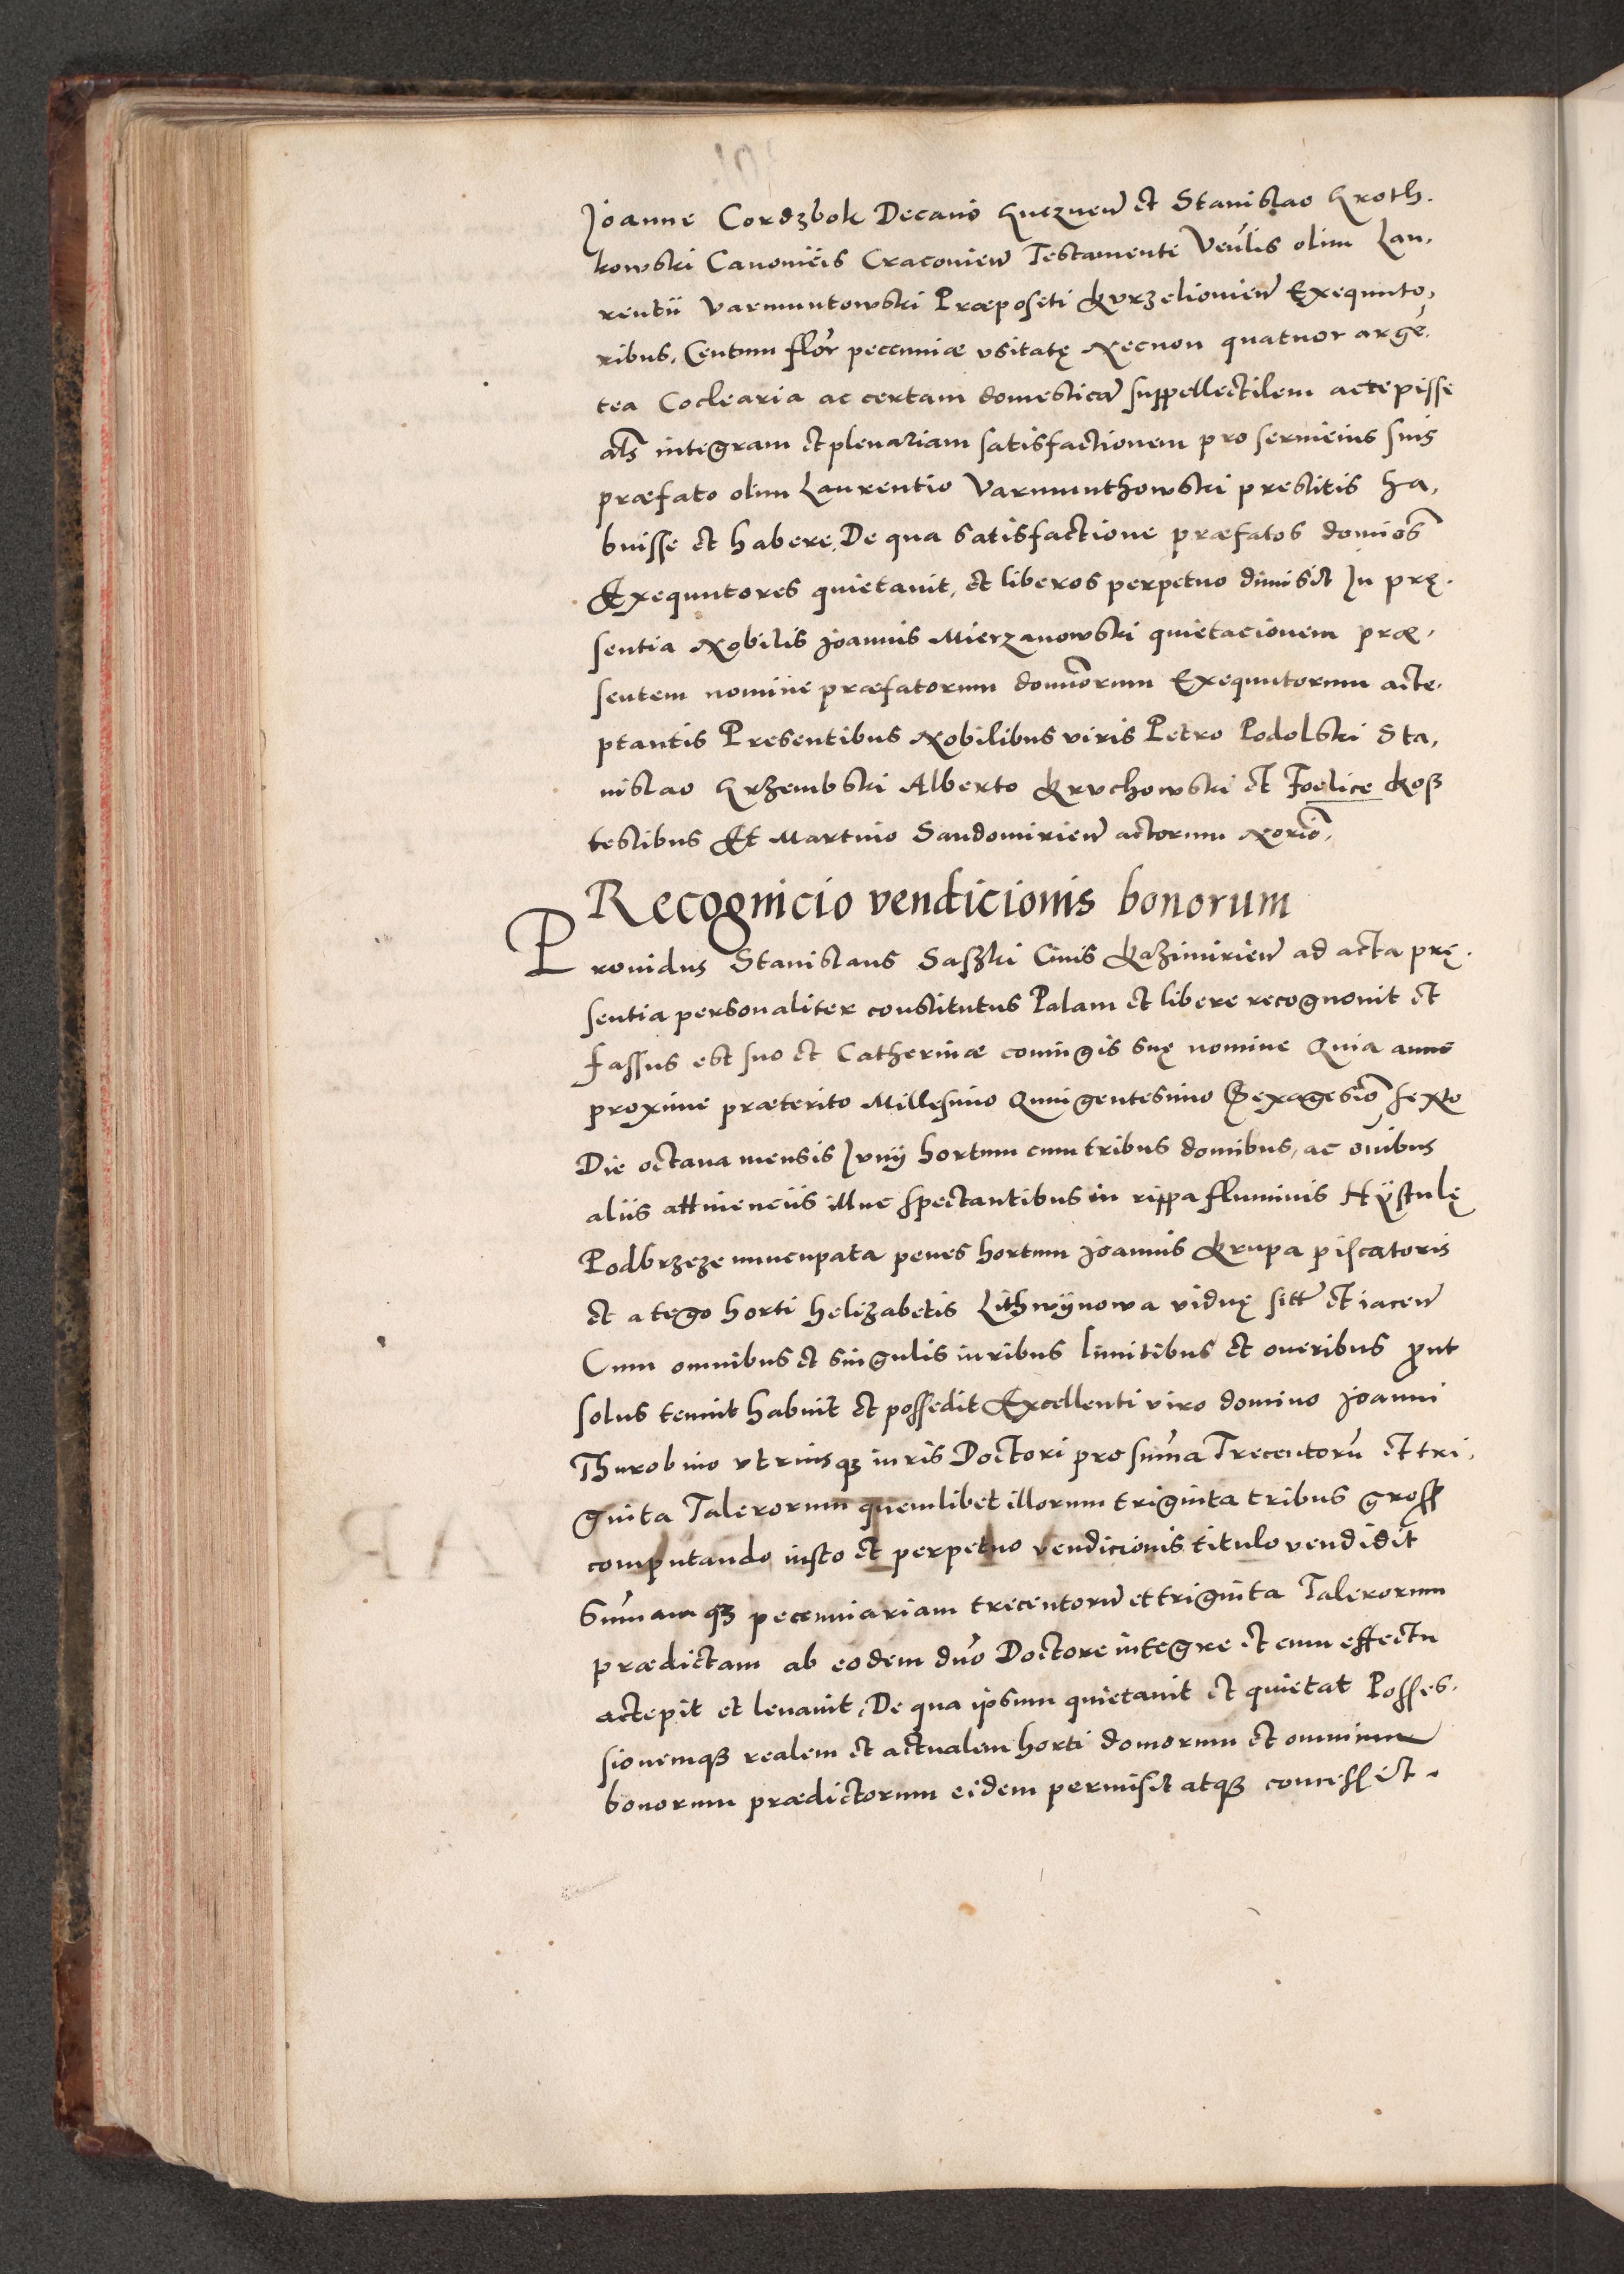 Joanne Cordzbok Decano Gneznen̄ et Stanislao Groth.
kowski Canonicis Cracovien̄ Testamente Veñlis olim Lau,
rentii Varmuntowski Præpositi Kurzelionien̄ Exequuto,
ribus, Centum flor̄ peccuniæ usitatę Necnon quatuor argē
tea Coclearia ac certam domesticā suppellectilem accepisse
als̄ integram et plenariam satisfactionem pro serviciis suis
præfato olim Laurentio Varmunthowski prestitis ha,
buisse et habere, De qua satisfactione præfatos domiōs
Exequutores quietavit, et liberos perpetuo dimisit In prę.
sentia Nobilis Joannis Mierzanowski quietacionem præ,
sentem nomine præfatorum domiōrum Exequutorum acce.
ptantis Presentibus Nobilibus viris Petro Podolski Sta,
nislao Grzembski Alberto Kruchowski et Foelice Koß
testibus Et Martino Sandomirien̄ actorum Noriō,
Recognicio vendicionis bonorum
Providus Stanislaus Saszki Civis Kazimirien̄ ad acta prę.
sentia personaliter constitutus Palam et libere recognovit et
fassus est suo et Catherinæ coniugis suę nomine Quia anno
proxime præterito Millesimo Quingentesimo Sexagesiō sexto
Die octava mensis Junij hortum cum tribus domibus, ac oñibus
aliis attinenciis illuc spectantibus in rippa fluminis Hÿstulę
Podbrzeze nuncupata penes hortum Joannis Krupa piscatoris
et a tergo horti Helizabetis Lithwÿnowa viduę sitt̄ et iacen̄
Cum omnibus et singulis iuribus limitibus et oneribus ꝓut
solus tenuit habuit et possedit Excellenti viro domino Joanni
Thurobino utriusqꝫ iuris Doctori pro sum̄a Trecentorū et tri,
ginta Talerorum quemlibet illorum triginta tribus gross
computando iusto et perpetuo vendicionis titulo vendidit
Sum̄amqꝫ peccuniariam trecentorū et triginta Talerorum
prædictam ab eodem dn̄o Doctore integre et cum effectu
accepit et levavit, De qua ipsum quietavit et quietat Posses.
sionemqꝫ realem et actualem horti domorum et omnium
bonorum prædictorum eidem permisit atqꝫ concessit.